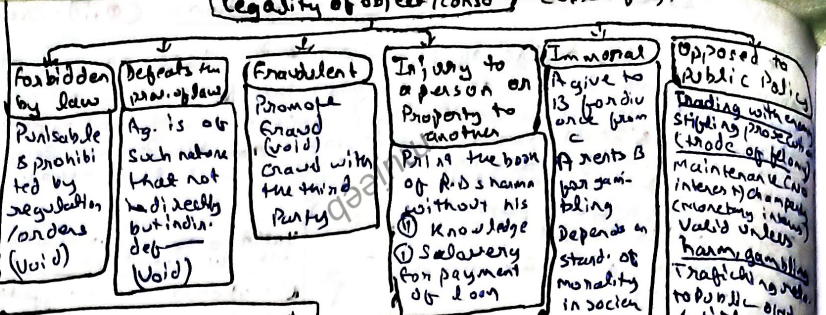 Legality of object/cons
Forbidden
by law
Punisable
& prohibi
ted by
regulation
/orders
(Void)
Defeats the
prov. of law
Ag. is of
such nature
that not
directly
but indir.
def
(Void)
Fraudulent
Promote
fraud
(void)
fraud with
the third
Party
Injury to
a person or
Property to
another
Print the book
of R.D sharma
without his
① Knowledge
① Salavery
for payment
of loan
Immoral
A give to
B for div
orce from
C
A rents B
for gam-
bling
Depends on
stand. of
morality
in socien
Opposed to
Public Policy
Trading with enem
stifling prosecuti
(trade of felony)
Maintenance (no
interest) champerty
(monetary interest)
Valid unless
harm, gambling
Traficking rela.
to Public